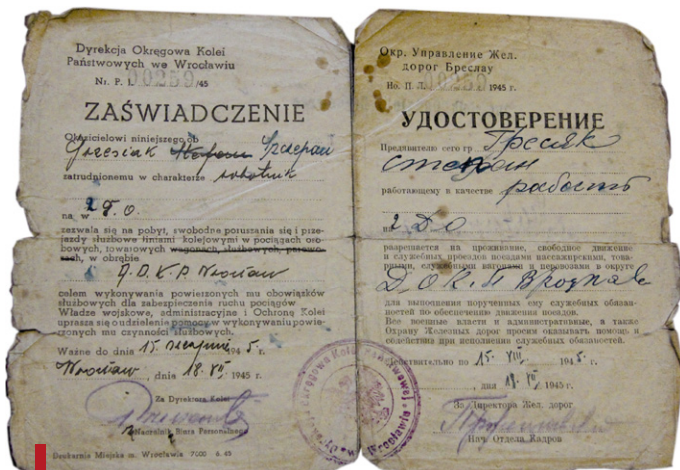 Dyrekcja Okręgowa Kolei
Państwowych we Wrocławiu
Nr. P. I. 00259/45
ZAŚWIADCZENIE
Okazicielowi niniejszego ob
Grzesiak Szczepan
zatrudnionemu w charakterze robotnik
na w 2 D.O.
zezwala się na pobyt, swobodne poruszania się i prze-
jazdy służbowe liniami kolejowymi w pociągach oso-
bowych, towarowych wagonach, służbowych, parowo-
zach, w obrębie
D.O.K.P. Wrocław
celem wykonywania powierzonych mu obowiązków
służbowych dla zabezpieczenie ruchu pociągów
Władze wojskowe, administracyjne i Ochronę Kolei
uprasza się o udzielenie pomocy w wykonywaniu powie-
rzonych mu czynności służbowych.
Ważne do dnia 15. 1945 r.
Wrocław, dnia 18. VII. 1945 r.
Za Dyrektora Kolei
Naczelnik Biura Personalnego
Drukarnia Miejska m. Wrocławia 7000 6.45
Окр. Управление Жел.
дорог Бреслау
Но. П. Л. 1945 г.
УДОСТОВЕРЕНИЕ
Предявителю сего гр. Гресяк
Степан
работающему в качестве
на 2 Д О
разрешается на проживание, свободное движение
и служебных проездов поездами пассажирскими, това-
рными, служебными вагонами и перевозами в округе
Д.О.К.П Вроцлав
для выпонцения порученных ему служебных обязан-
ностей по обеспечению движения поездов.
Все военные власти и административные, а также
Охрану Железных дорог просим оказывать помощь и
содействия при исполнении служебных обязанностей.
Действительно по 15. VIII. 1945 г.
, дня 18. VII. 1945 г.
За Директора Жел. дорог
Нач. Отдела Кадров